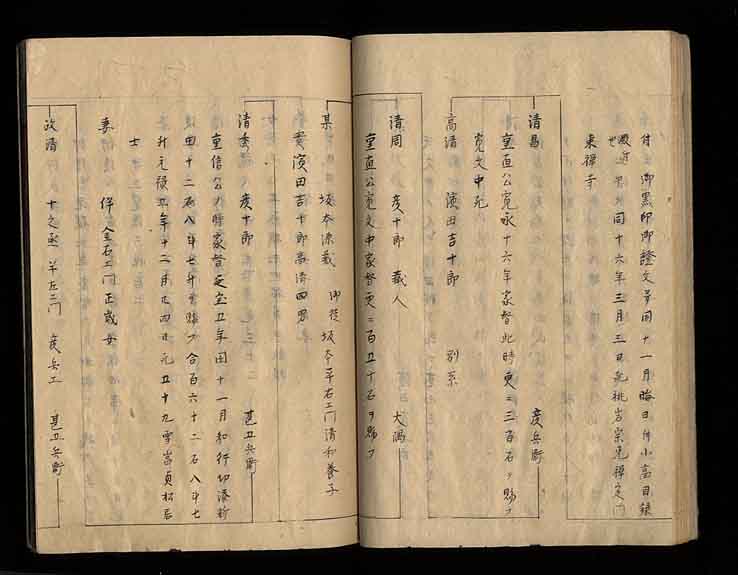 付 御黒印御證文等同十一月晦日付小高目録
同十六年三月三日死桃岩宗見禅定門
東禅寺
清昌 彦兵衛
重直公寛永十六年家督此時更ニ三百石ヲ賜フ
寛文中死
高清 濱田吉十郎 別系
清周 彦十郎 蔵人 大隅
重直公寛文中家督更ニ百五十石ヲ賜フ
某 坂本源蔵 御徒 坂本平右エ門清和養子
実濱田吉十郎高清四男
清秀 彦十郎 甚五兵衛
重信公ノ時家督延宝五年同十一月和
田十二石八斗七升ヲ賜フ合百六十二石八斗七
升元禄五年十二月元五十九
士
妻 伴金右エ門正成女
政清 十之丞 半左エ門 彦兵エ 甚五兵衛